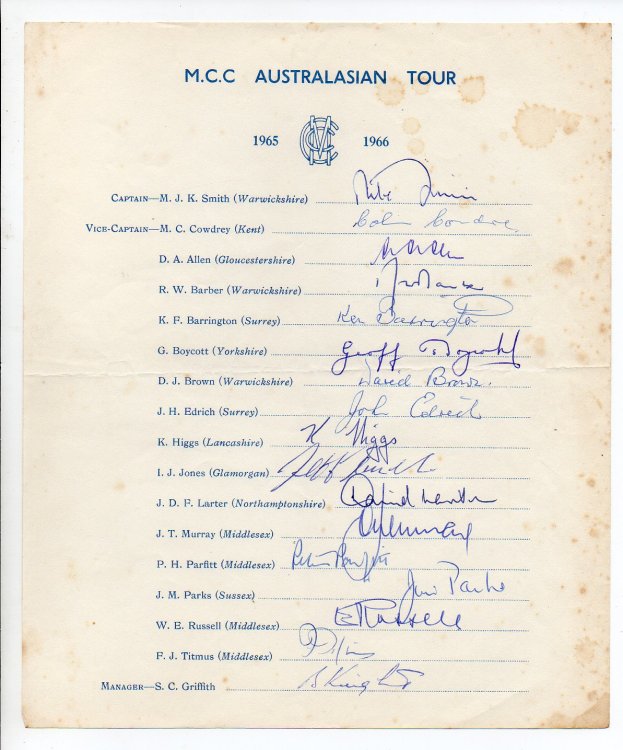 M.C.C AUSTRALASIAN TOUR
1965 MCC 1966
CAPTAIN—M. J. K. Smith (Warwickshire) Mike Smith
VICE-CAPTAIN—M. C. Cowdrey (Kent) Colin Cowdrey
D. A. Allen (Gloucestershire)
R. W. Barber (Warwickshire)
K. F. Barrington (Surrey) Ken Barrington
G. Boycott (Yorkshire) Geoff Boycott
D. J. Brown (Warwickshire) David Brown
J. H. Edrich (Surrey) John Edrich
K. Higgs (Lancashire) K Higgs
I. J. Jones (Glamorgan)
J. D. F. Larter (Northamptonshire) David Larter
J. T. Murray (Middlesex) J T Murray
P. H. Parfitt (Middlesex) Peter Parfitt
J. M. Parks (Sussex) Jim Parks
W. E. Russell (Middlesex) E Russell
F. J. Titmus (Middlesex)
MANAGER—S. C. Griffith B Knight